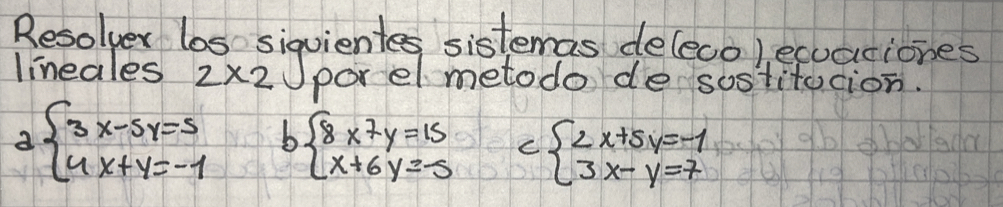 Resolver los siguientes sistemas de (eco) ecuaciones
lineales 2x2 por el metodo de sostitucion.
a { 3x-5y=5 b { 8x7y=15 c { 2x+5y=-1
4x+y=-1 x+6y=-5 3x-y=7